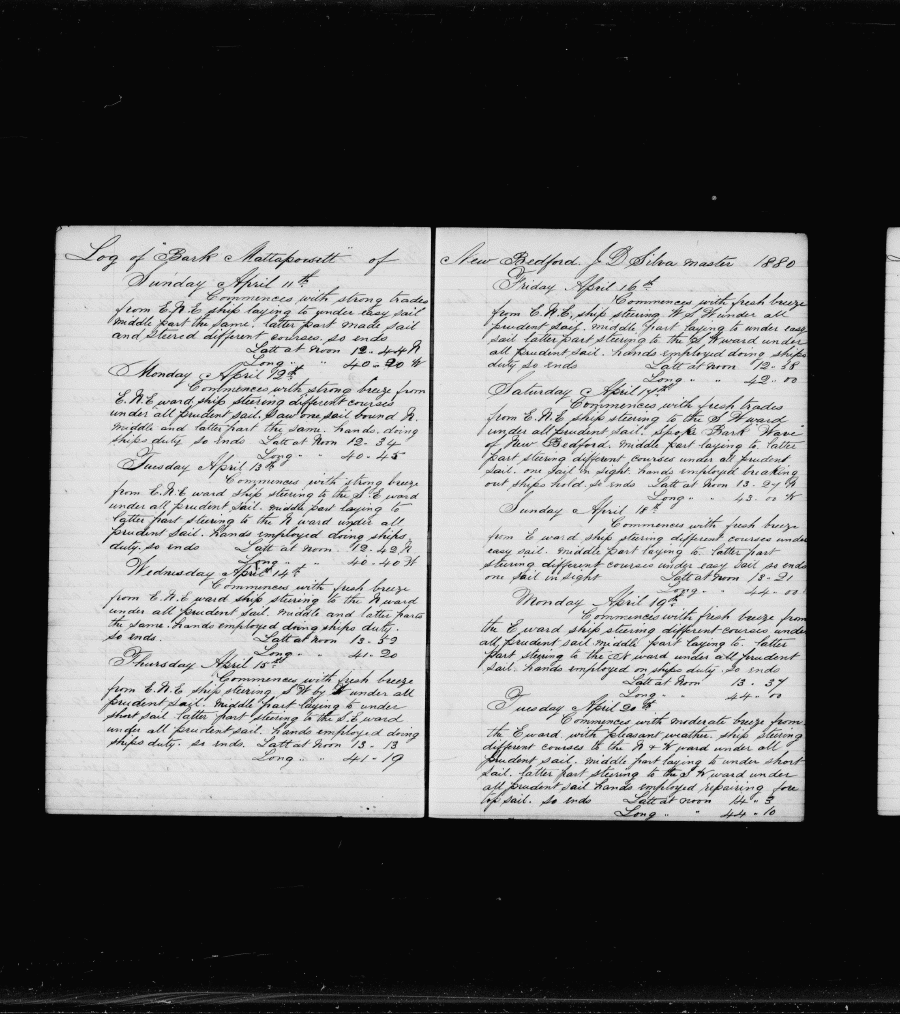 Log of "Bark Mattapoisett" of
Sunday April 11th
Commences with strong trades
from E.N.E ship laying to under easy sail
middle part the same. latter part made sail
and steered different courses. so ends
Latt at Noon 12 - 44 N
Long " " 40 - 20 W
Monday April 12th
Commences with strong breeze from
E.N.E ward ship steering different courses
under all prudent sail. Saw one sail bound N.
middle and latter part the same. hands. doing
ships duty. so ends Latt at Noon 12 - 34
Long " " 40 - 45
Tuesday April 13th
Commences with strong breeze
from E.N.E ward ship steering to the S.E ward
under all prudent sail. middle part laying to
latter part steering to the N ward under all
prudent sail. hands employed doing ships
duty. so ends Latt at noon. 12 - 42 N
Long " " 40 - 40 W
Wednesday April 14th
Commences with fresh breeze
from E.N.E ward ship steering to the N ward
under all prudent sail. middle and latter parts
the same. hands employed doing ships duty.
so ends. Latt at noon 13 - 52
Long " " 41 - 20
Thursday April 15th
Commences with fresh breeze
from E.N.E ship steering S W by W under all
prudent sail. middle part laying to under
short sail latter part steering to the S.E ward
under all prudent sail. hands employed doing
ships duty. so ends. Latt at Noon 13 - 13
Long " " 41 - 19
New Bedford. J D Silva master 1880
Friday April 16th
Commences with fresh breeze
from E.N.E, ship steering W S W under all
prudent sail. middle part laying to under easy
sail latter part steering to the S W ward under
all prudent sail. hands employed doing ships
duty so ends Latt at noon 12 - 38
Long " " 42 - 00
Saturday April 17th
Commences with fresh trades
from E.N.E ship steering to the S W ward
under all prudent sail. Spoke Bark "Wave"
of New Bedford. middle part laying to. latter
part steering different courses under all prudent
sail. one sail in sight. hands employed breaking
out ships hold. so ends Latt at Noon 13 - 27 N
Long " " 43 - 00 W
Sunday April 18th
Commences with fresh breeze
from E ward ship steering different courses under
easy sail. middle part laying to. latter part
steering different courses under easy sail so ends
one sail in sight Latt at noon 13 - 21
Long " " 44 - 00
Monday April 19th
Commences with fresh breeze from
the E ward ship steering different courses under
all prudent sail middle part laying to. latter
part steering to the N ward under all prudent
sail. hands employed on ships duty. so ends
Latt at Noon 13 - 37
Long " 44 - 00
Tuesday April 20th
Commences with moderate breeze from
the E ward with pleasant weather. ship steering
diffrent courses to the N & W ward under all
prudent sail. middle part laying to under short
sail. latter part steering to the S W ward under
all prudent sail hands employed repairing fore
top sail. so ends Latt at noon 14 - 3
Long " " 44 - 10